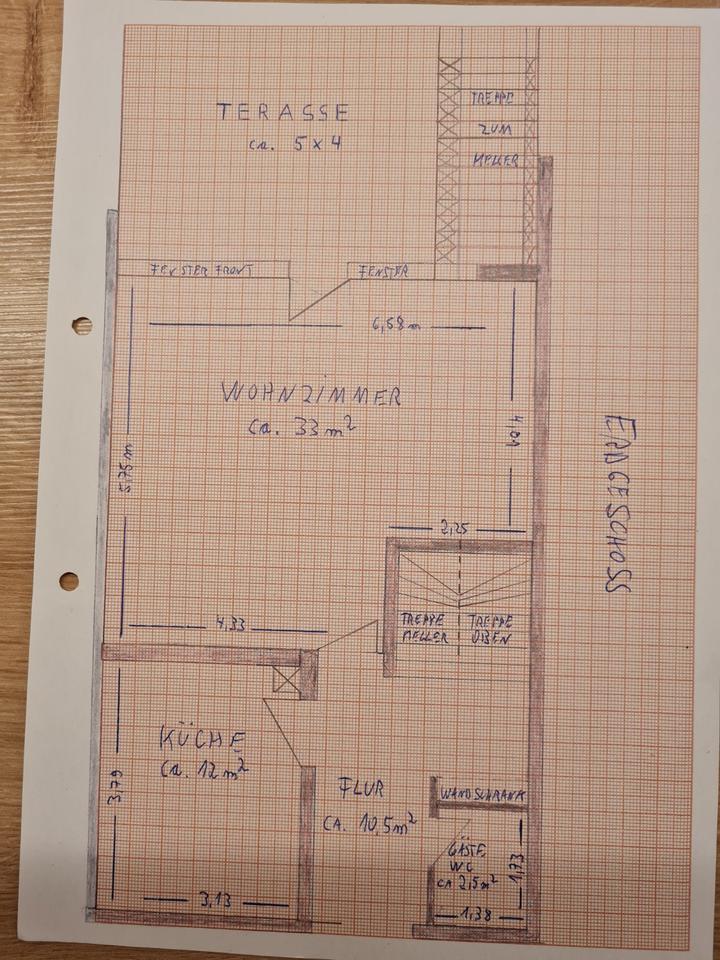 TERASSE
ca. 5 x 4
TREPPE
ZUM
KELLER
FENSTERFRONT
FENSTER
6,58 m
WOHNZIMMER
ca. 33 m²
5,75 m
4,01
ERDGESCHOSS
2,25
4,33
TREPPE
KELLER
TREPPE
OBEN
KÜCHE
ca. 12 m²
3,79
3,13
FLUR
CA. 10,5 m²
WANDSCHRANK
GÄSTE
WC
ca 2,5 m²
1,73
1,38